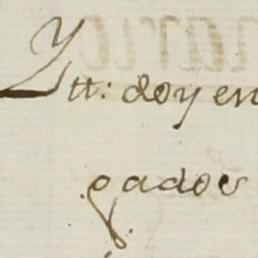 Ytt: doy en
gados